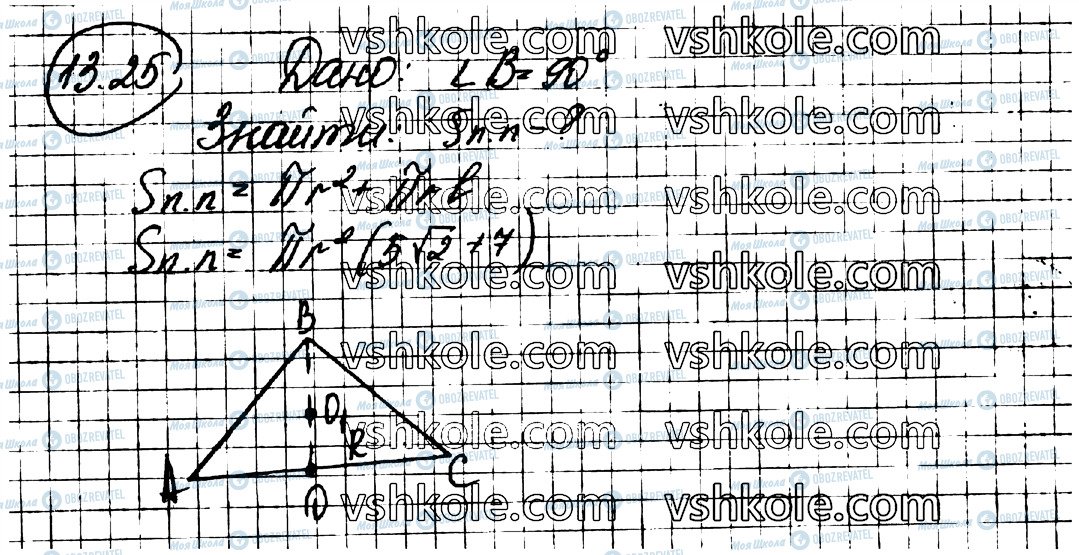 13.25
Дано: ∠B = 90°
Знайти: Sп.п - ?
Sп.п = πr² + πrl
Sп.п = πr²(5√2 + 7)
B
O₁
R
A
O
C
vshkole.com vshkole.com
vshkole.com vshkole.com
vshkole.com vshkole.com
vshkole.com vshkole.com
vshkole.com vshkole.com
vshkole.com vshkole.com
vshkole.com vshkole.com
Моя Школа OBOZREVATEL